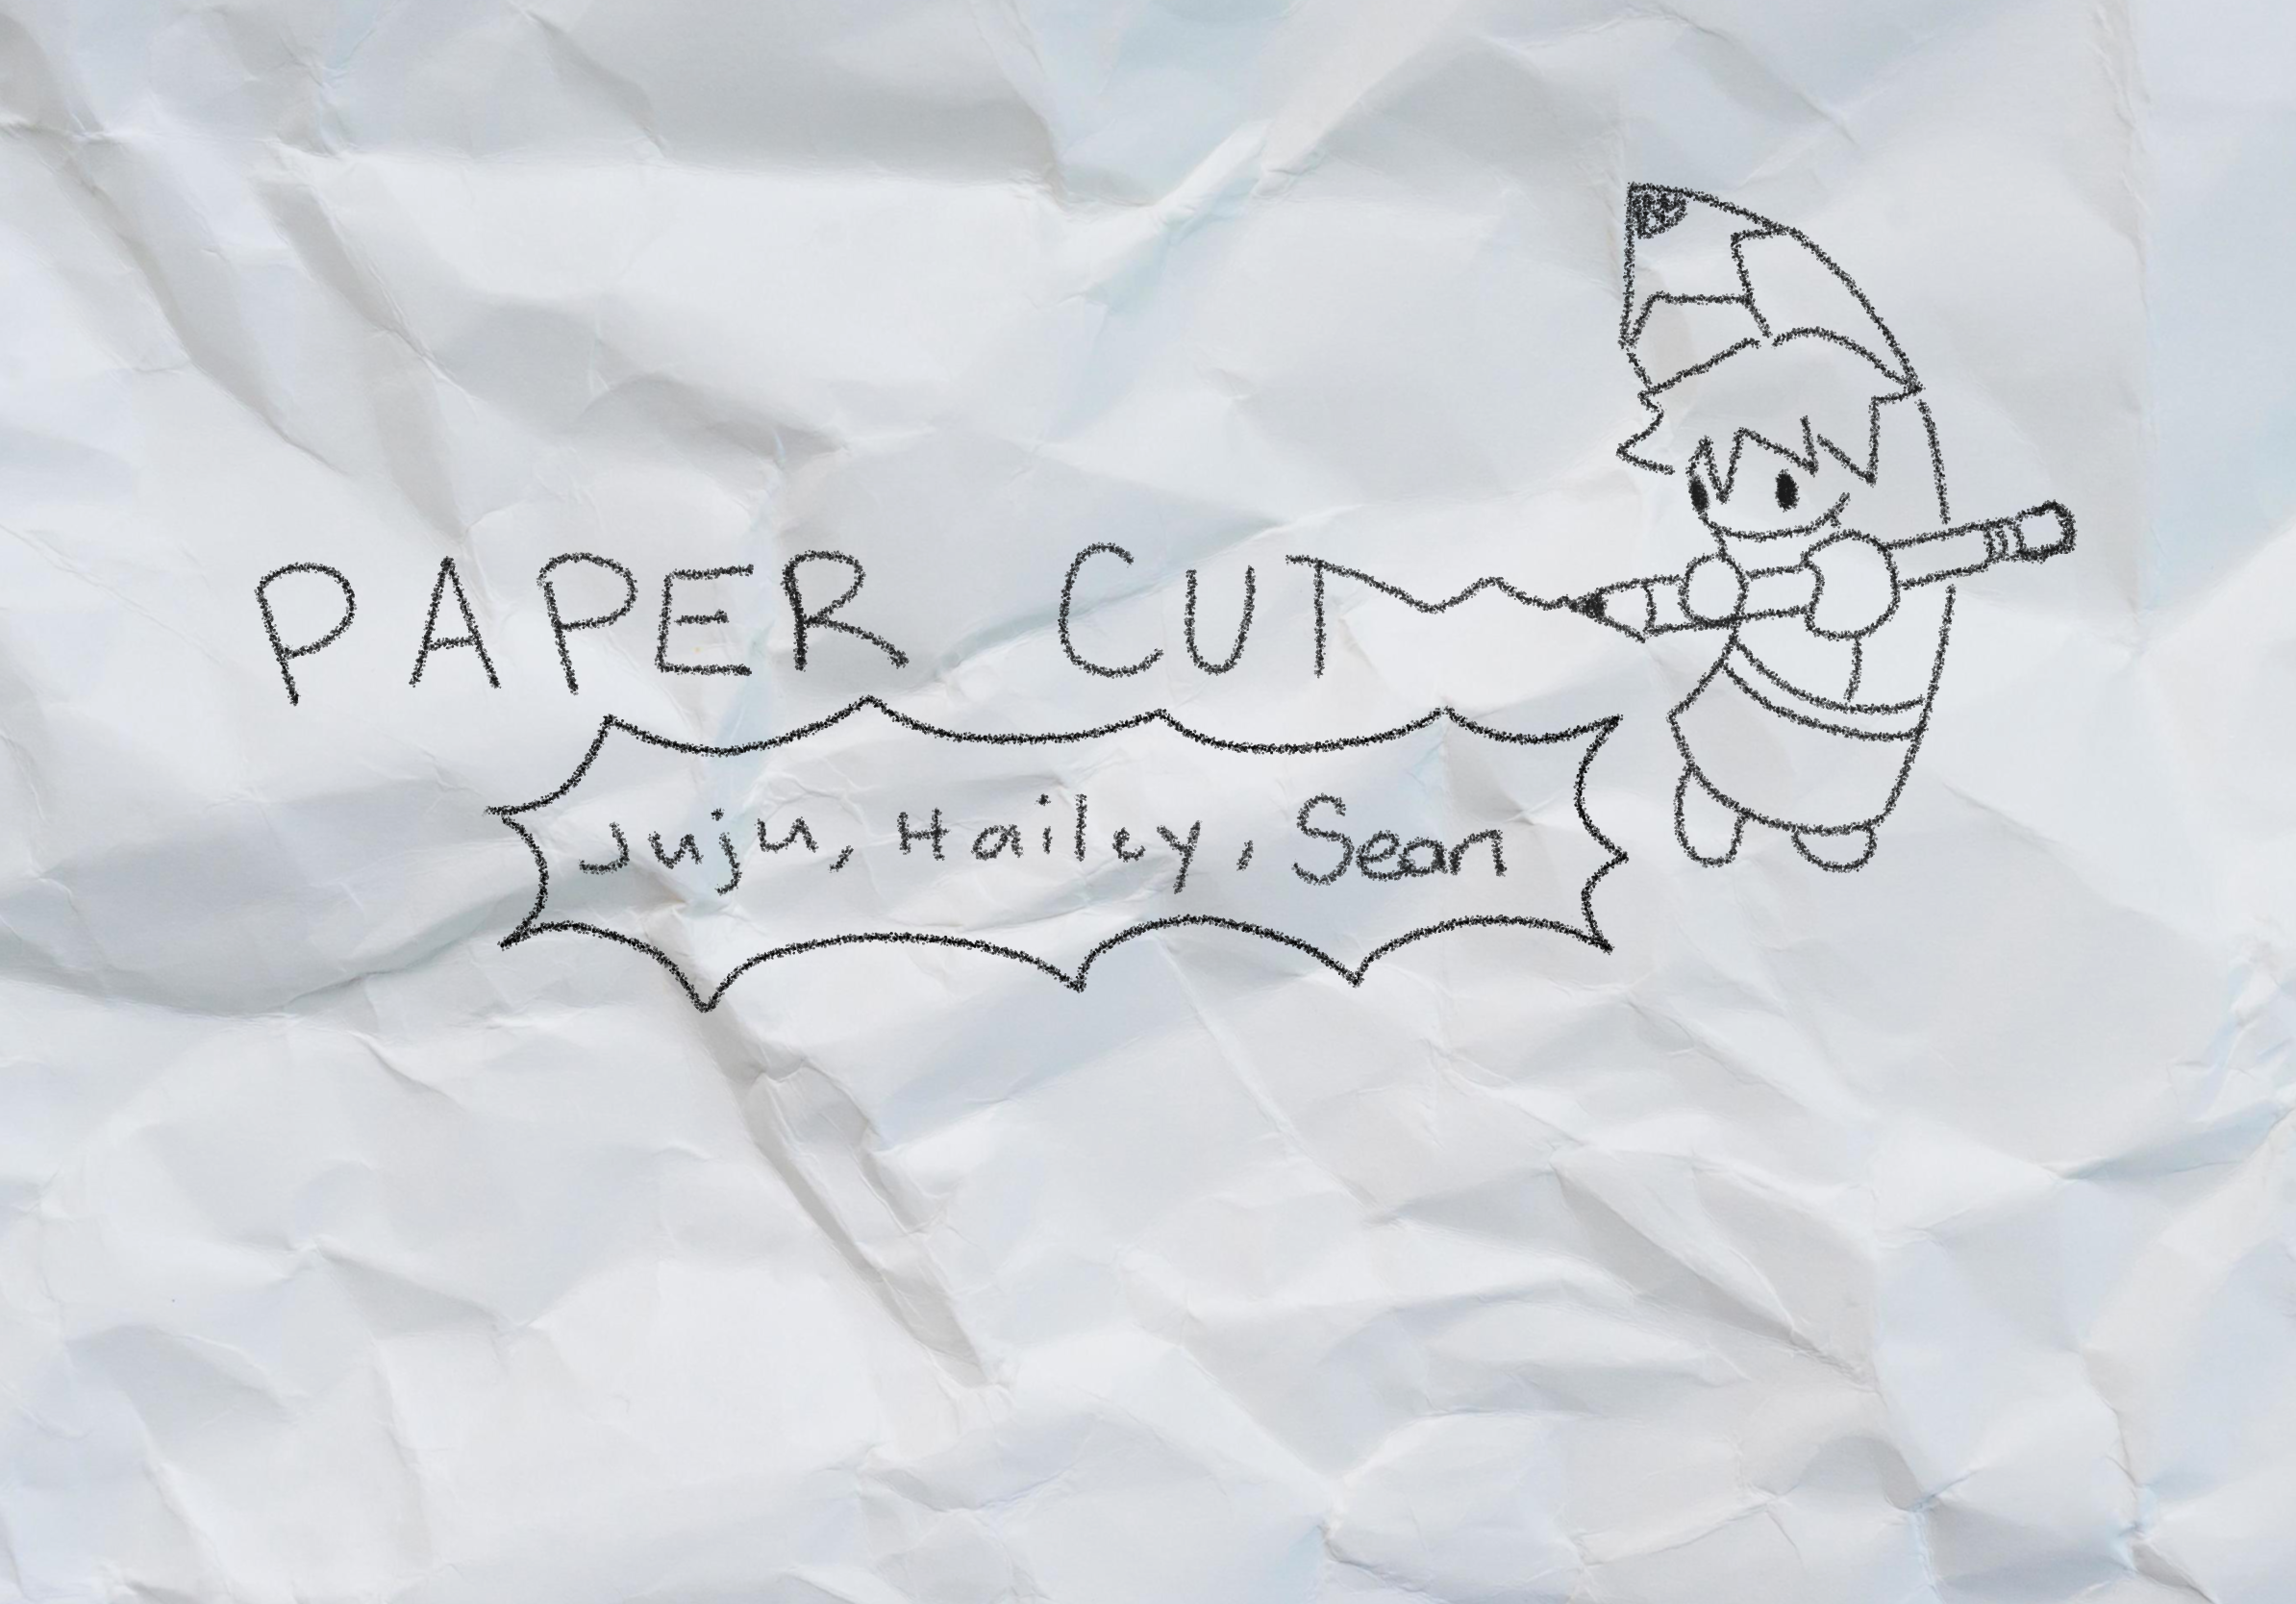 PAPER CUT
Juju, Hailey, Sean